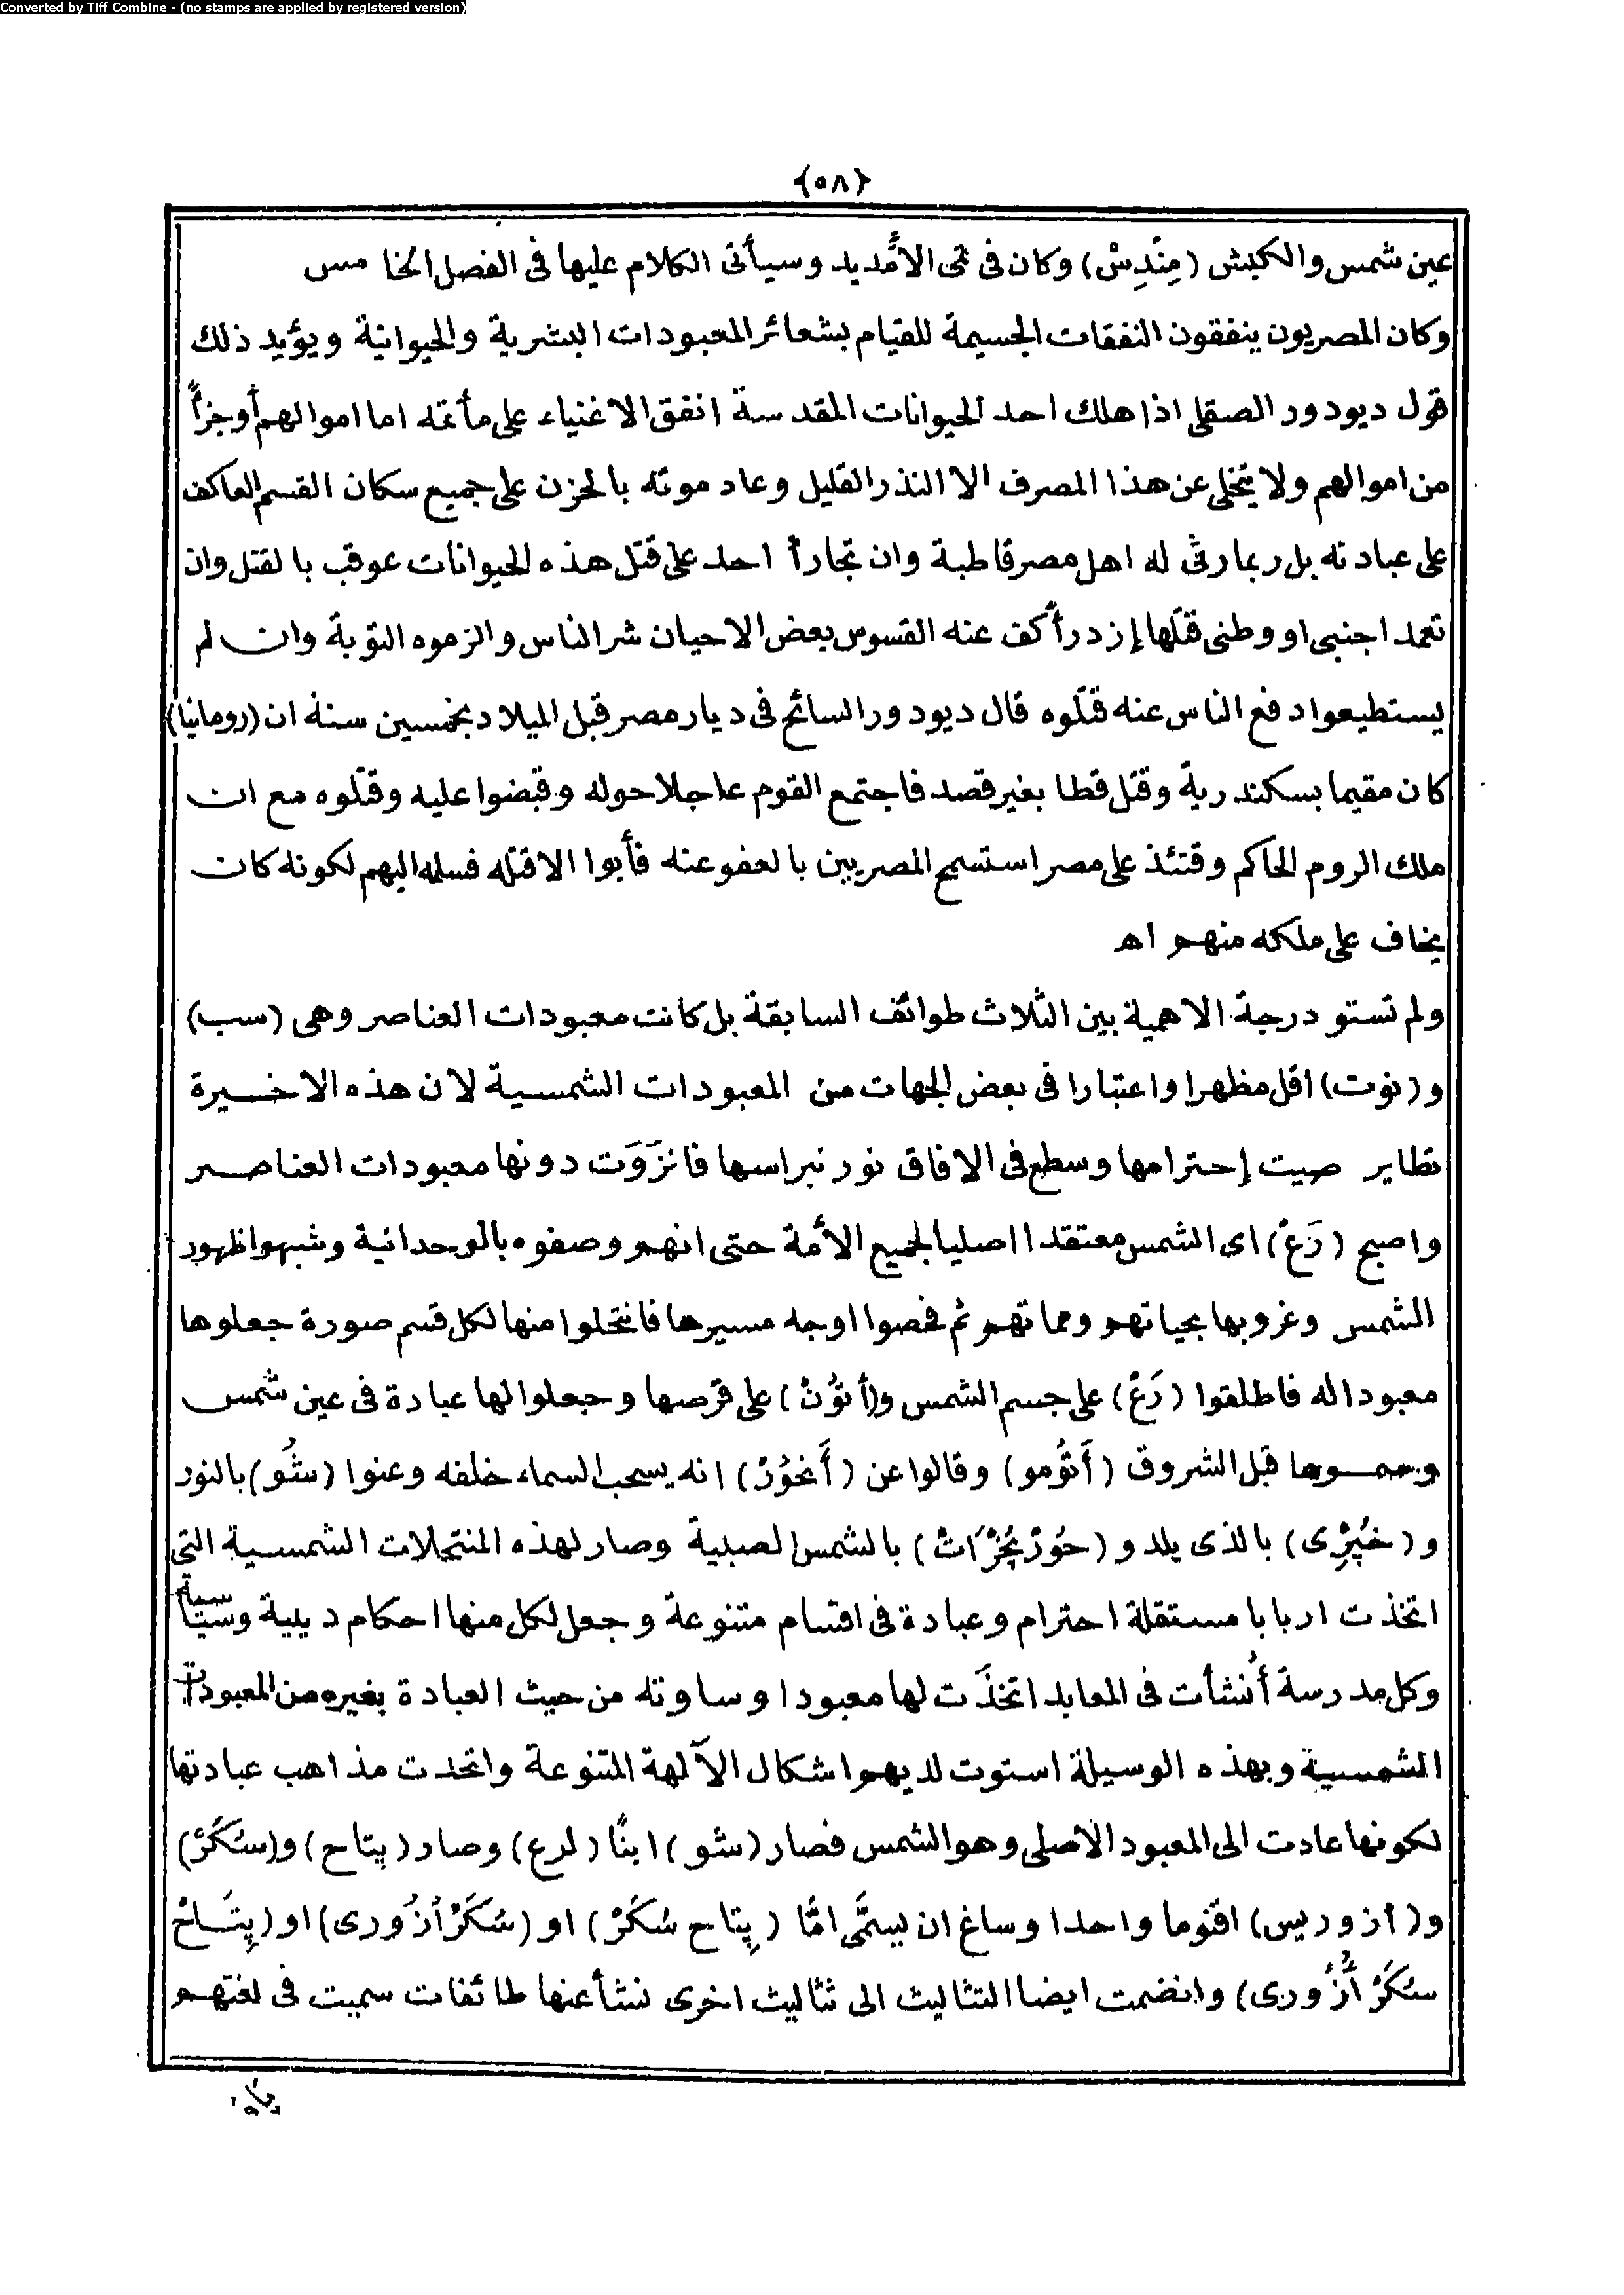 Converted by Tiff Combine - (no stamps are applied by registered version)
{٥٨}
عين شمس والكبش (مِنْدِسْ) وكان فى تمى الامَّديد وسيأتى الكلام عليها فى الفصل الخامس
وكان المصريون ينفقون النفقات الجسيمة للقيام بشعائر المعبودات البشرية والحيوانية ويؤيد ذلك
قول ديودور الصقلى اذا هلك احد الحيوانات المقدسة انفق الاغنياء على مأتمه اما اموالهم أوجزأً
من اموالهم ولا يتخلى عن هذا المصرف الا النذر القليل وعاد موته بالحزن على جميع سكان القسم العاكف
على عبادته بل ربما رثى له اهل مصر قاطبة وان تجارأ احد على قتل هذه الحيوانات عوقب بالقتل وان
تعمد اجنبى او وطنى قتلها إزدرأً كف عنه القسوس بعض الاحيان شر الناس والزموه التوبة وان لم
يستطيعوا دفع الناس عنه قتلوه قال ديودور السائح فى ديار مصر قبل الميلاد بخمسين سنة ان (رومانيا)
كان مقيما بسكندرية وقتل قطا بغير قصد فاجتمع القوم عاجلا حوله وقبضوا عليه وقتلوه مع ان
ملك الروم الحاكم وقتئذ على مصر استسمح المصريين بالعفو عنه فأبوا الا قتله فسلمه اليهم لكونه كان
يخاف على ملكه منهم اهـ
ولم تستو درجة الاهمية بين الثلاث طوائف السابقة بل كانت معبودات العناصر وهى (سب)
و(نوت) اقل مظهرا واعتبارا فى بعض الجهات من المعبودات الشمسية لان هذه الاخيرة
تطاير صيت إحترامها وسطع فى الافاق نور نبراسها فانزَوَت دونها معبودات العناصر
واصبح (رَعْ) اى الشمس معتقدا اصليا لجميع الأمة حتى انهم وصفوه بالوحدانية وشبهوا ظهور
الشمس وغروبها بحياتهم ومماتهم ثم فحصوا اوجه مسيرها فانتحلوا منها لكل قسم صورة جعلوها
معبودا له فاطلقوا (رَعْ) على جسم الشمس و(أتُوُنْ) على قرصها وجعلوا لها عبادة فى عين شمس
وسموها قبل الشروق (أَتُومو) وقالوا عن (أَنحُوُرْ) انه يسحب السماء خلفه وعنوا (شُو) بالنور
و(خُپِرْى) بالذى يلد و(حُوُرْپُخْرَاتْ) بالشمس الصبية وصار لهذه المنتحلات الشمسية التى
اتخذت اربابا مستقلة احترام وعبادة فى اقسام متنوعة وجعل لكل منها احكام دينية وسياسية
وكل مدرسة أُنشأت فى المعابد اتخذَت لها معبودا وساوته من حيث العبادة بغيره من المعبودات
الشمسية وبهذه الوسيلة استوت لديهم اشكال الآلهة المتنوعة واتحدت مذاهب عبادتها
لكونها عادت الى المعبود الأصلى وهو الشمس فصار (شو) ابنًا (لرع) وصار (پتاح) و(سُكَرْ)
و(ازوريس) اقنوما واحدا وساغ ان يسمَّى امَّا (پِتاح سُكَرْ) او (سُكَرْ أزُورى) او (پِتَاحْ
سُكَرْ أُزُورى) وانضمت ايضا التثاليث الى ثثاليث اخرى نشأ عنها طائفات سميت فى لغتهم